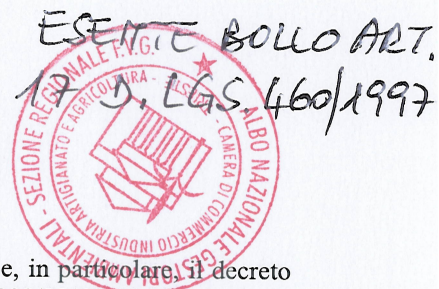 ESENTE BOLLO ART.
17 D. LGS. 460/1997
ALBO NAZIONALE GESTORI AMBIENTALI - SEZIONE REGIONALE F.V.G.
CAMERA DI COMMERCIO INDUSTRIA ARTIGIANATO E AGRICOLTURA -
e, in particolare, il decreto